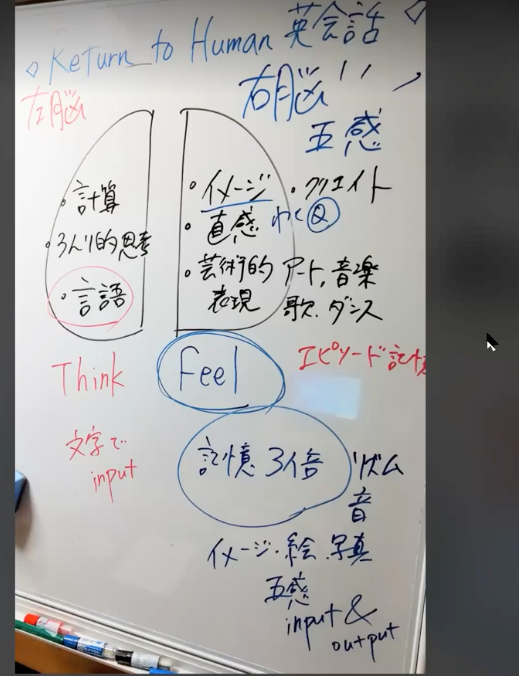 ◇ Return to Human 英会話 ◇
左脳
右脳
五感
・計算
・ろんり的思考
・言語
・イメージ ・クリエイト
・直感 わく
・芸術的 アート, 音楽
表現 歌. ダンス
Think
Feel
エピソード記憶
文字で
input
記憶 3倍
リズム
音
イメージ・絵.写真
五感
input &
output